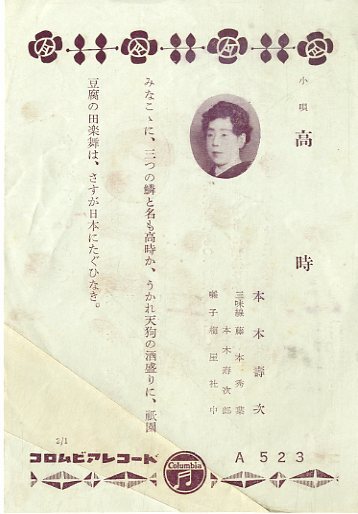 小唄
高時
本木壽次
三味線 藤本秀葉
本木壽次郎
囃子 福屋社中
みなこゝに、三つの鱗と名も高時か、うかれ天狗の酒盛りに、祇園
豆腐の田楽舞は、さすが日本にたぐひなき。
2/1
コロムビアレコード
Columbia
A 523